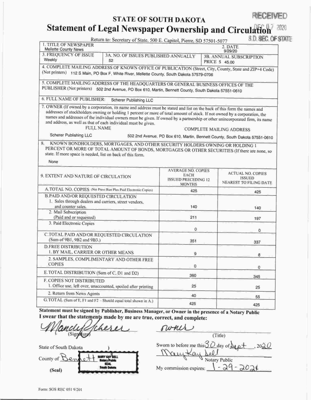 STATE OF SOUTH DAKOTA
RECEIVED
Statement of Legal Newspaper Ownership and Circulation
S.D. SEC. OF STATE
Return to: Secretary of State, 500 E. Capitol, Pierre, SD 57501-5077
1. TITLE OF NEWSPAPER
Mellette County News
2. DATE
3. FREQUENCY OF ISSUE
Weekly
3A. NO. OF ISSUES PUBLISHED ANNUALLY
52
3B. ANNUAL SUBSCRIPTION
PRICE $
4. COMPLETE MAILING ADDRESS OF KNOWN OFFICE OF PUBLICATION (Street, City, County, State and ZIP+4 Code)
(Not printers) 112 S Main, PO Box F, White River, Mellette County, South Dakota
5. COMPLETE MAILING ADDRESS OF THE HEADQUARTERS OR GENERAL BUSINESS OFFICES OF THE
PUBLISHER (Not printers) 602 2nd Avenue, PO Box 610, Martin, Bennett County, South Dakota
6. FULL NAME OF PUBLISHER: Scherer Publishing LLC
7. OWNER (If owned by a corporation, its name and address must be stated and list on the back of this form the names and
addresses of stockholders owning or holding 1 percent or more of total amount of stock. If not owned by a corporation, the
names and addresses of the individual owners must be given. If owned by a partnership or other unincorporated firm, its name
and address, as well as that of each individual must be given.)
FULL NAME
COMPLETE MAILING ADDRESS
Scherer Publishing LLC
602 2nd Avenue, PO Box 610, Martin, Bennett County, South Dakota
8. KNOWN BONDHOLDERS, MORTGAGES, AND OTHER SECURITY HOLDERS OWNING OR HOLDING 1
PERCENT OR MORE OF TOTAL AMOUNT OF BONDS, MORTGAGES OR OTHER SECURITIES (If there are none, so
state. If more space is needed, list on back of this form).
None
9. EXTENT AND NATURE OF CIRCULATION
AVERAGE NO. COPIES
EACH
ISSUED PRECEDING 12
MONTHS
ACTUAL NO. COPIES
ISSUED
NEAREST TO FILING DATE
A. TOTAL NO. COPIES
425
425
B. PAID AND/OR REQUESTED CIRCULATION
1. Sales through dealers and carriers, street vendors,
and counter sales.
140
140
2. Mail Subscription
(Paid and or requested)
3. Paid Electronic Copies
0
0
C. TOTAL PAID AND/OR REQUESTED CIRCULATION
(Sum of 9B1, 9B2 and 9B3.)
D. FREE DISTRIBUTION
1. BY MAIL, CARRIER OR OTHER MEANS
2. SAMPLES, COMPLIMENTARY AND OTHER FREE
COPIES
0
0
E. TOTAL DISTRIBUTION (Sum of C, D1 and D2)
F. COPIES NOT DISTRIBUTED
1. Office use, left over, unaccounted, spoiled after printing
25
25
2. Return from News Agents
G. TOTAL (Sum of E, F1 and F2 - Should equal total shown in A.)
425
425
Statement must be signed by Publisher, Business Manager, or Owner in the presence of a Notary Public
I swear that the statements made by me are true, correct, and complete:
Mandy Scherer
owner
(Signature)
(Title)
State of South Dakota
Sworn to before me this 30 day of Sept, 2020
County of Bennett
Notary Public
(Seal)
My commission expires: